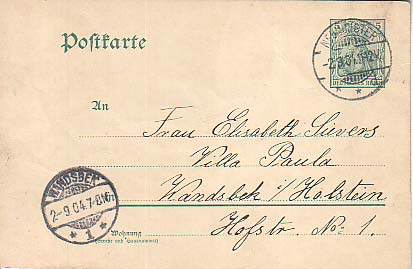 Postkarte
NEUMÜNSTER
-2.9.04.
5
An
Frau Elisabeth Sievers
Villa Paula
WANDSBEK
2-9.04.7-8N.
* 1 *
Wandsbek i/Holstein
Hofstr. No: 1.
Wohnung
(Straße und Hausnummer)